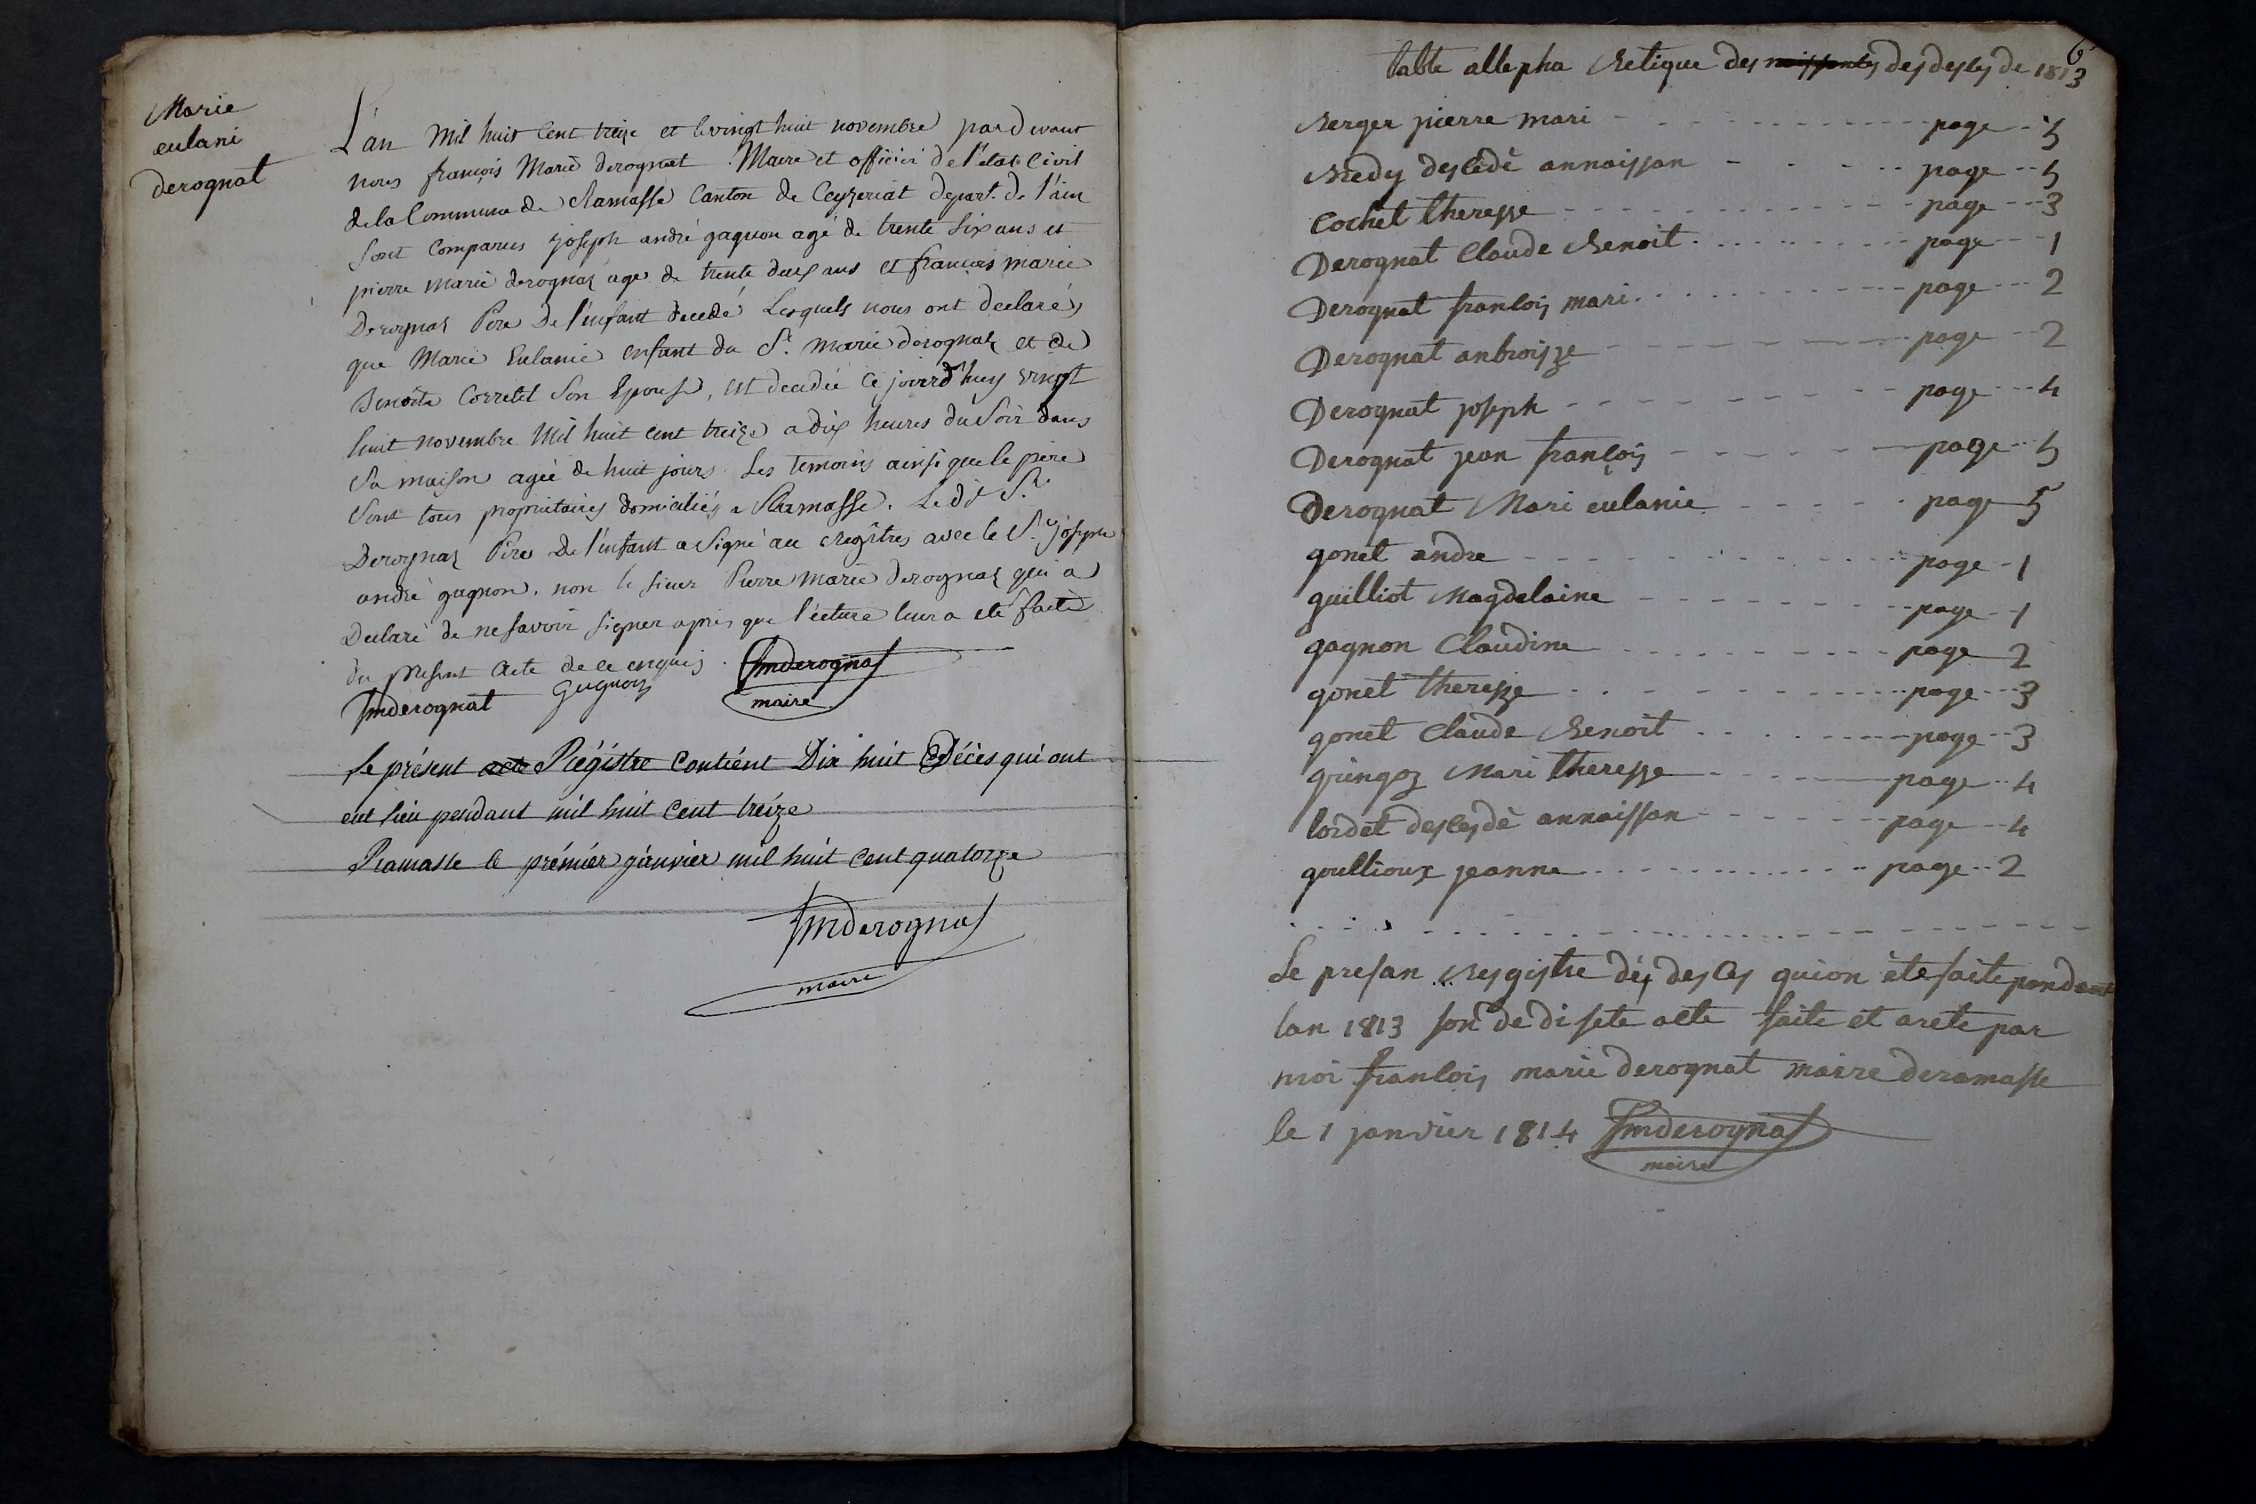 Marie
eulani
derognat
L'an Mil huit Cent treize et le vingt huit novembre par devant
nous françois Marie derognat Maire et officier de l'état Civil
de la Commune de Ramasse Canton de Ceyzeriat depart. de l'ain
Sont Comparus joseph andré gagnon agé de trente Six ans et
pierre marie derognat agé de trente deux ans et françois marie
Derognat Père De l'enfant decedé Lesquels nous ont declaré
que Marie Eulanie enfant du Sr. marie derognat et de
Benoite Corretet Son Epouse, est decedée ce jourd'huy vingt
huit novembre Mil huit Cent treize a dix heures du Soir dans
Sa maison agée de huit jours. Les temoins ainsi que le père
Sont tous proprietaires domiciliés a Ramasse. Le dit Sr.
Derognat Père De l'enfant a Signé au régitres avec le Sr. joseph
andré gagnon, non le sieur Pierre Marie derognat qui a
Declaré de ne savoir signer apres que l'ecture leur a eté faite
du present acte de ce enquis.
fmderognat gagnon fmderognat
maire
Le présent acte Régistre contiént Dix huit Décès qui ont
eut lieu pendant mil huit cent treize
Ramasse le prémiér jánvier mil huit cent quatorze
fmderognat
maire
6
table allepha Betique des naissances des desses de 1813
Berger pierre mari page 5
Bredy dessedè annaissan page 5
Cochet theresse page 3
Derognat Claude Benoit page 1
Derognat francois mari page 2
Derognat anbroisse page 2
Derognat joseph page 4
Derognat jean françois page 5
Derognat Mari eulanie page 5
gonet andre page 1
guilliot Magdelaine page 1
gagnon Claudine page 2
gonet theresse page 3
gonet Claude Benoit page 3
gringoz Mari theresse page 4
lordet dessesdè annaissan page 4
goullioux jeanne page 2
Le presan Resgistre des desses quion éte faite pendant
lan 1813 son de disete acte faite et arete par
moi francois marie derognat maire deramasse
le 1 janvier 1814 fmderognat
maire